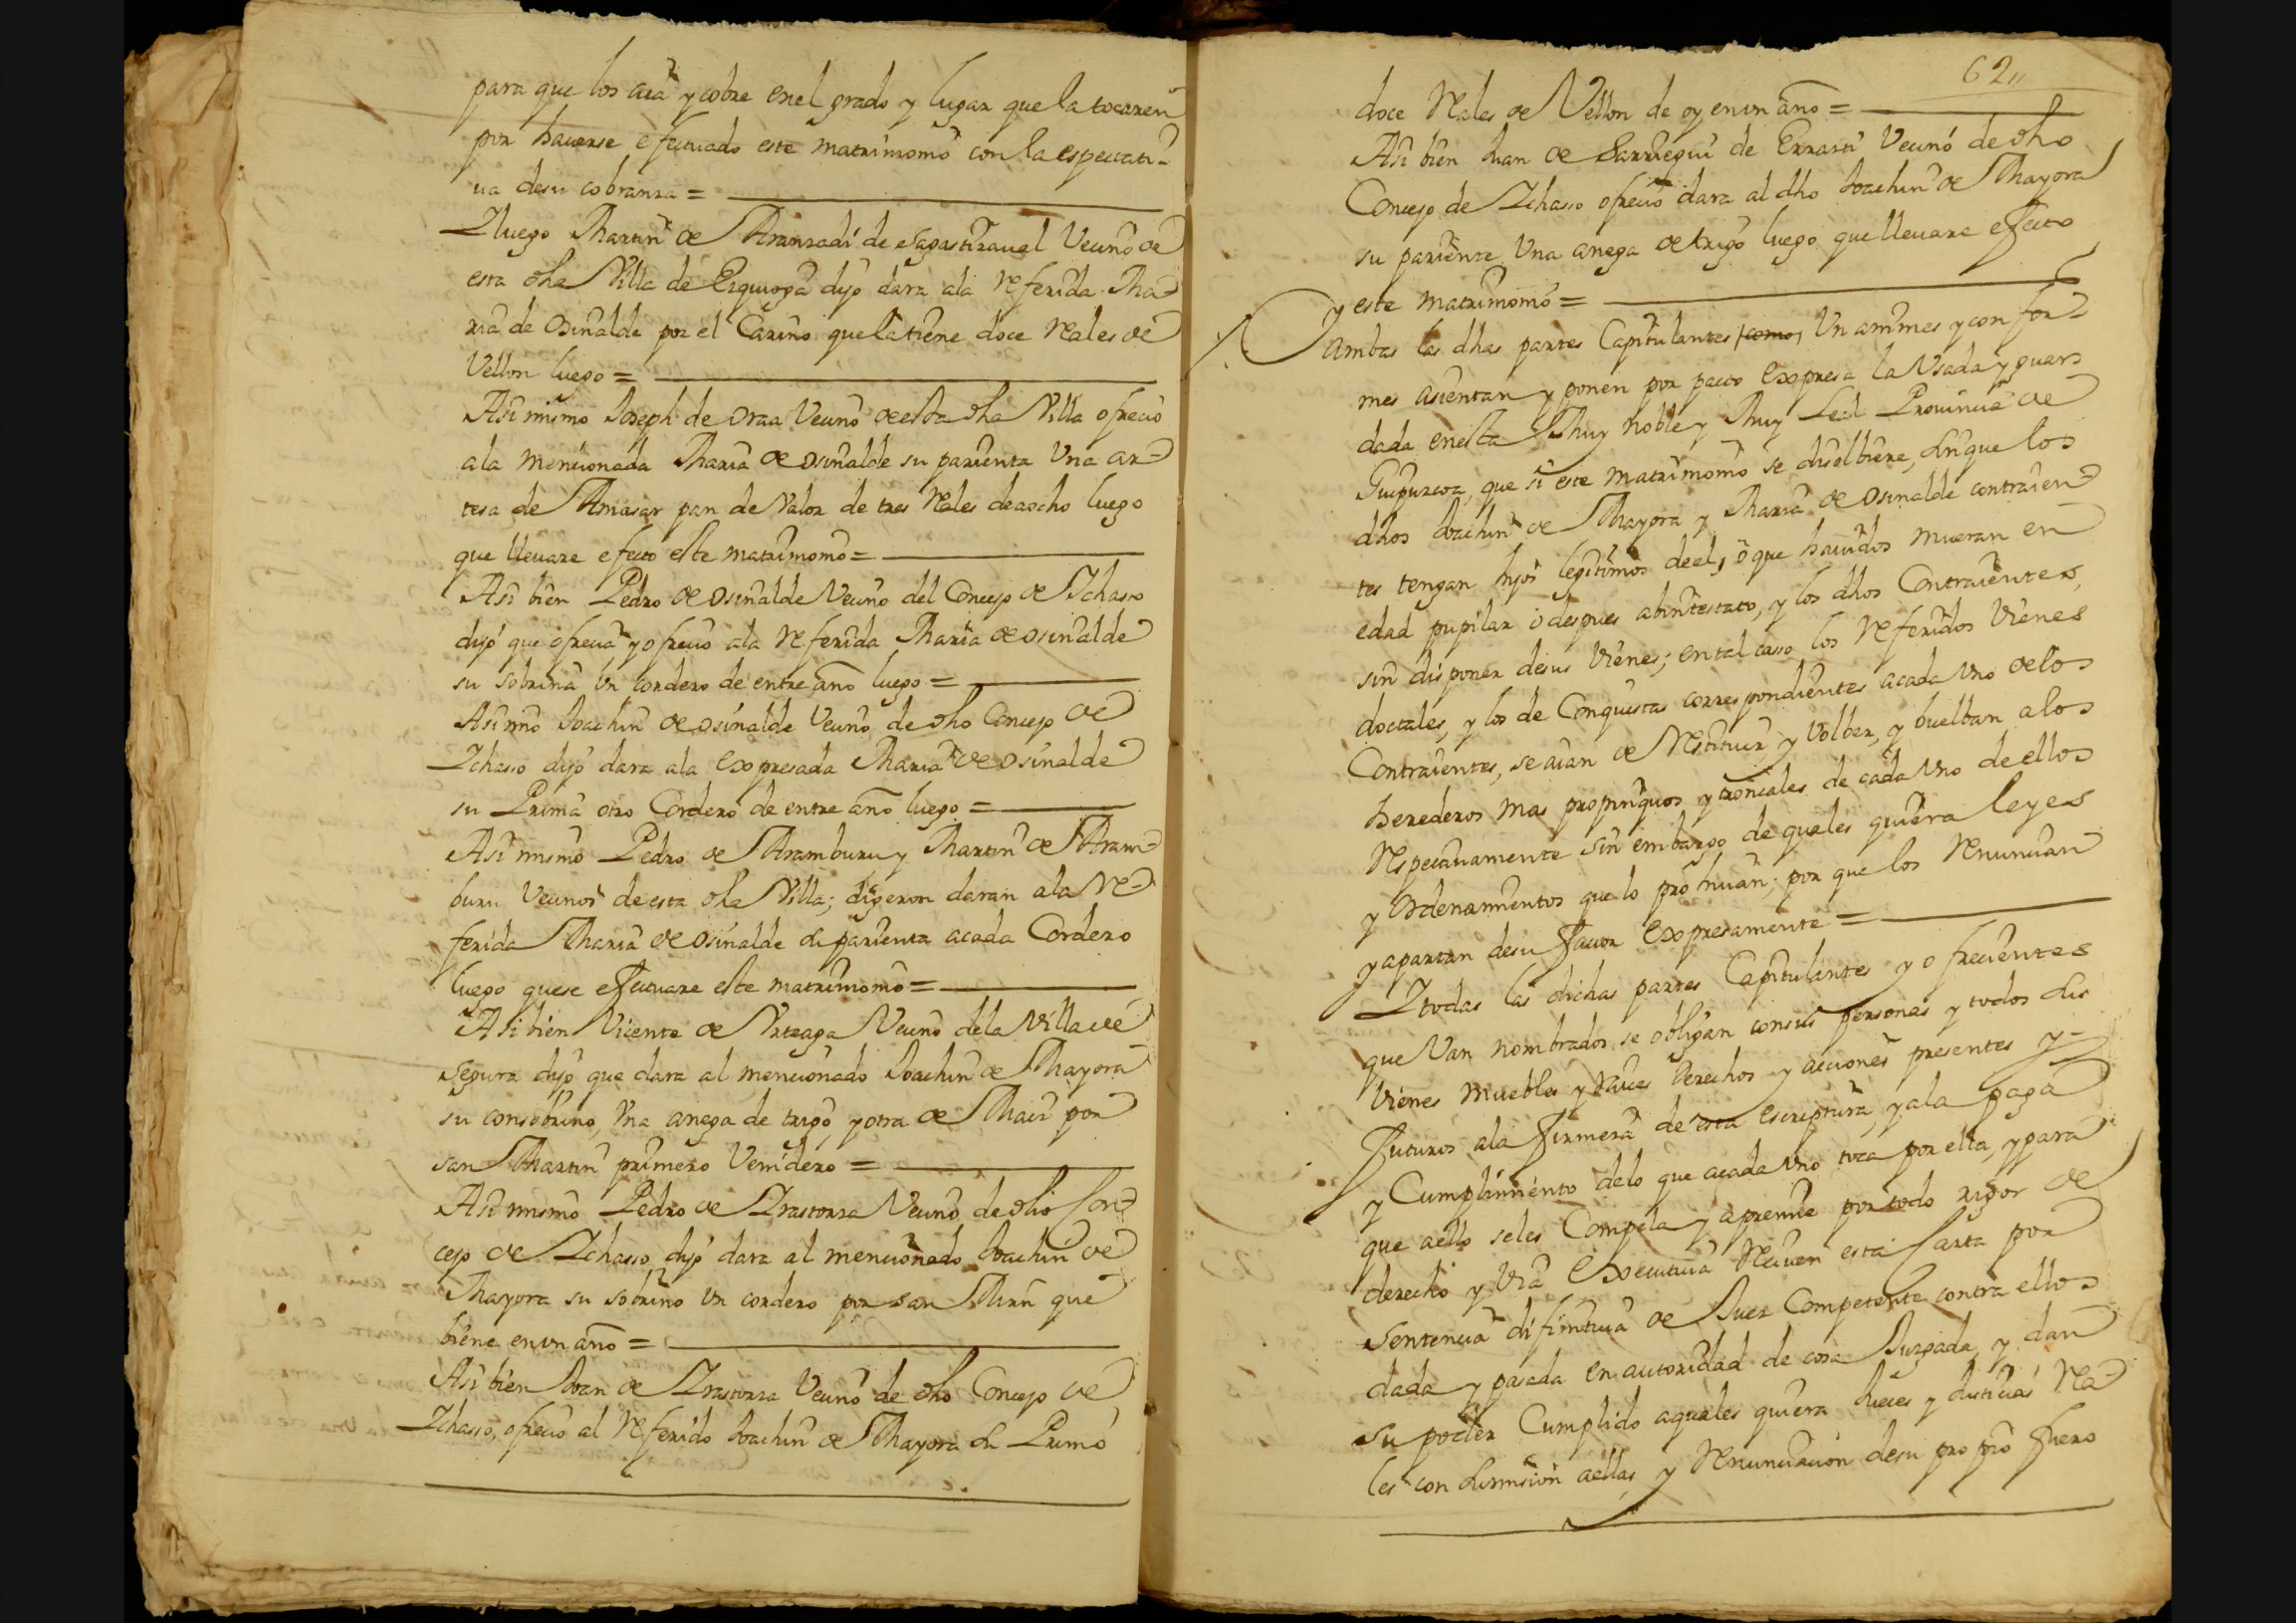 para que los aia y cobre en el grado y lugar que la tocaren
por hauerse efectuado este matrimonio con la espectati-
ua de su cobranza =
Y luego Martin de Aranzadi de Sagastizaual Vecino de
esta dha Villa de Ezquioga dijo dara ala referida Ma-
ria de Osinalde por el Cariño que la tiene doce Reales de
Vellon luego =
Asi mismo Joseph de Oraa Vecino de esta dha Villa ofrecio
ala mencionada Maria de Osinalde su parienta Una ar-
tesa de Amasar pan de Valor de tres Rales de aocho luego
que lleuare efecto este matrimonio =
Asi bien Pedro de Osinalde Vecino del Concejo de Ichasso
dijo que ofrecia y ofrecio ala referida Maria de Osinalde
su sobrina Un Cordero de entre año luego =
Asi mº Joachin de Osinalde Vecino de dho Concejo de
Ichasso dijo dara ala Expresada Maria de Osinalde
su Prima otro Cordero de entre año luego =
Asi mismo Pedro de Aramburu y Martin de Aram-
buru Vecinos de esta dha Villa; digeron daran ala Re-
ferida Maria de Osinalde su parienta acada Cordero
luego que se efectuare este matrimonio =
Asi bien Vicente de Arteaga Vecino dela Villa de
Segura dijo que dara al mencionado Joachin de Mayora
su consobrino, Una anega de trigo y otra de Maiz por
san Martin primero Venidero =
Asi mismo Pedro de Irastorza Vecino de dho Con-
cejo de Ichasso dijo dara al mencionado Joachin de
Mayora su sobrino Un cordero por san Mrn que
biene en un año =
Asi bien Juan de Irastorza Vecino de dho Concejo de
Ichasso, ofrecio al Referido Joachin de Mayora su Primo
62
doce Rales de Vellon de oy en un año =
Asi bien Juan de Sarriegui de Errarti Vecino de dho
Concejo de Ichasso ofrecio dara al dho Joachin de Mayora
su pariente Una anega de trigo luego que lleuare efecto
y este matrimonio =
Ambas las dhas partes Capitulantes como Unanimes y confor-
mes asientan y ponen por pacto Expresa la Usada y guar-
dada en esta Muy noble y Muy Leal Prouincia de
Guipuzcoa, que si este matrimonio se diselbiere, sin que los
dhos Joachin de Mayora y Maria de Osinalde contraien-
tes tengan hijos legitimos de el, o que hauidos mueran en
edad pupilar o despues abintestato, y los dhos Contraientes,
sin disponer de sus Vienes; en tal casso los Referidos Vienes
doctales, y los de Conquistas correspondientes acada Uno de los
Contraientes, se aian de Restituir y Volber, y buelban alos
herederos mas propinquos y tronicales de cada Uno de ellos
Respectiuamente sin embargo de quales quiera leyes
y Ordenamientos que lo prohiuan; por que los Renuncian
y apartan de su fauor Expresamente =
Y todas las dichas partes Capitulantes y ofrecientes
que Van nombrados se obligan con sus personas y todos sus
Vienes muebles y raices derechos y acciones presentes y
futuros ala firmeza de esta escriptura, y ala paga
y Cumplimiento delo que acada Uno toca por ella, y para
que aello seles Compela y apremie por todo rigor de
derecho y Via Executiua Reciuen esta Carta por
Sentencia difinitiua de Juez Competente contra ellos
dada y pasada en autoridad de cosa Juzgada, y dan
su poder Cumplido aquales quiera Jueces y Justicias Rea-
les con sumision aellas, y Renunciacion de su propio fuero